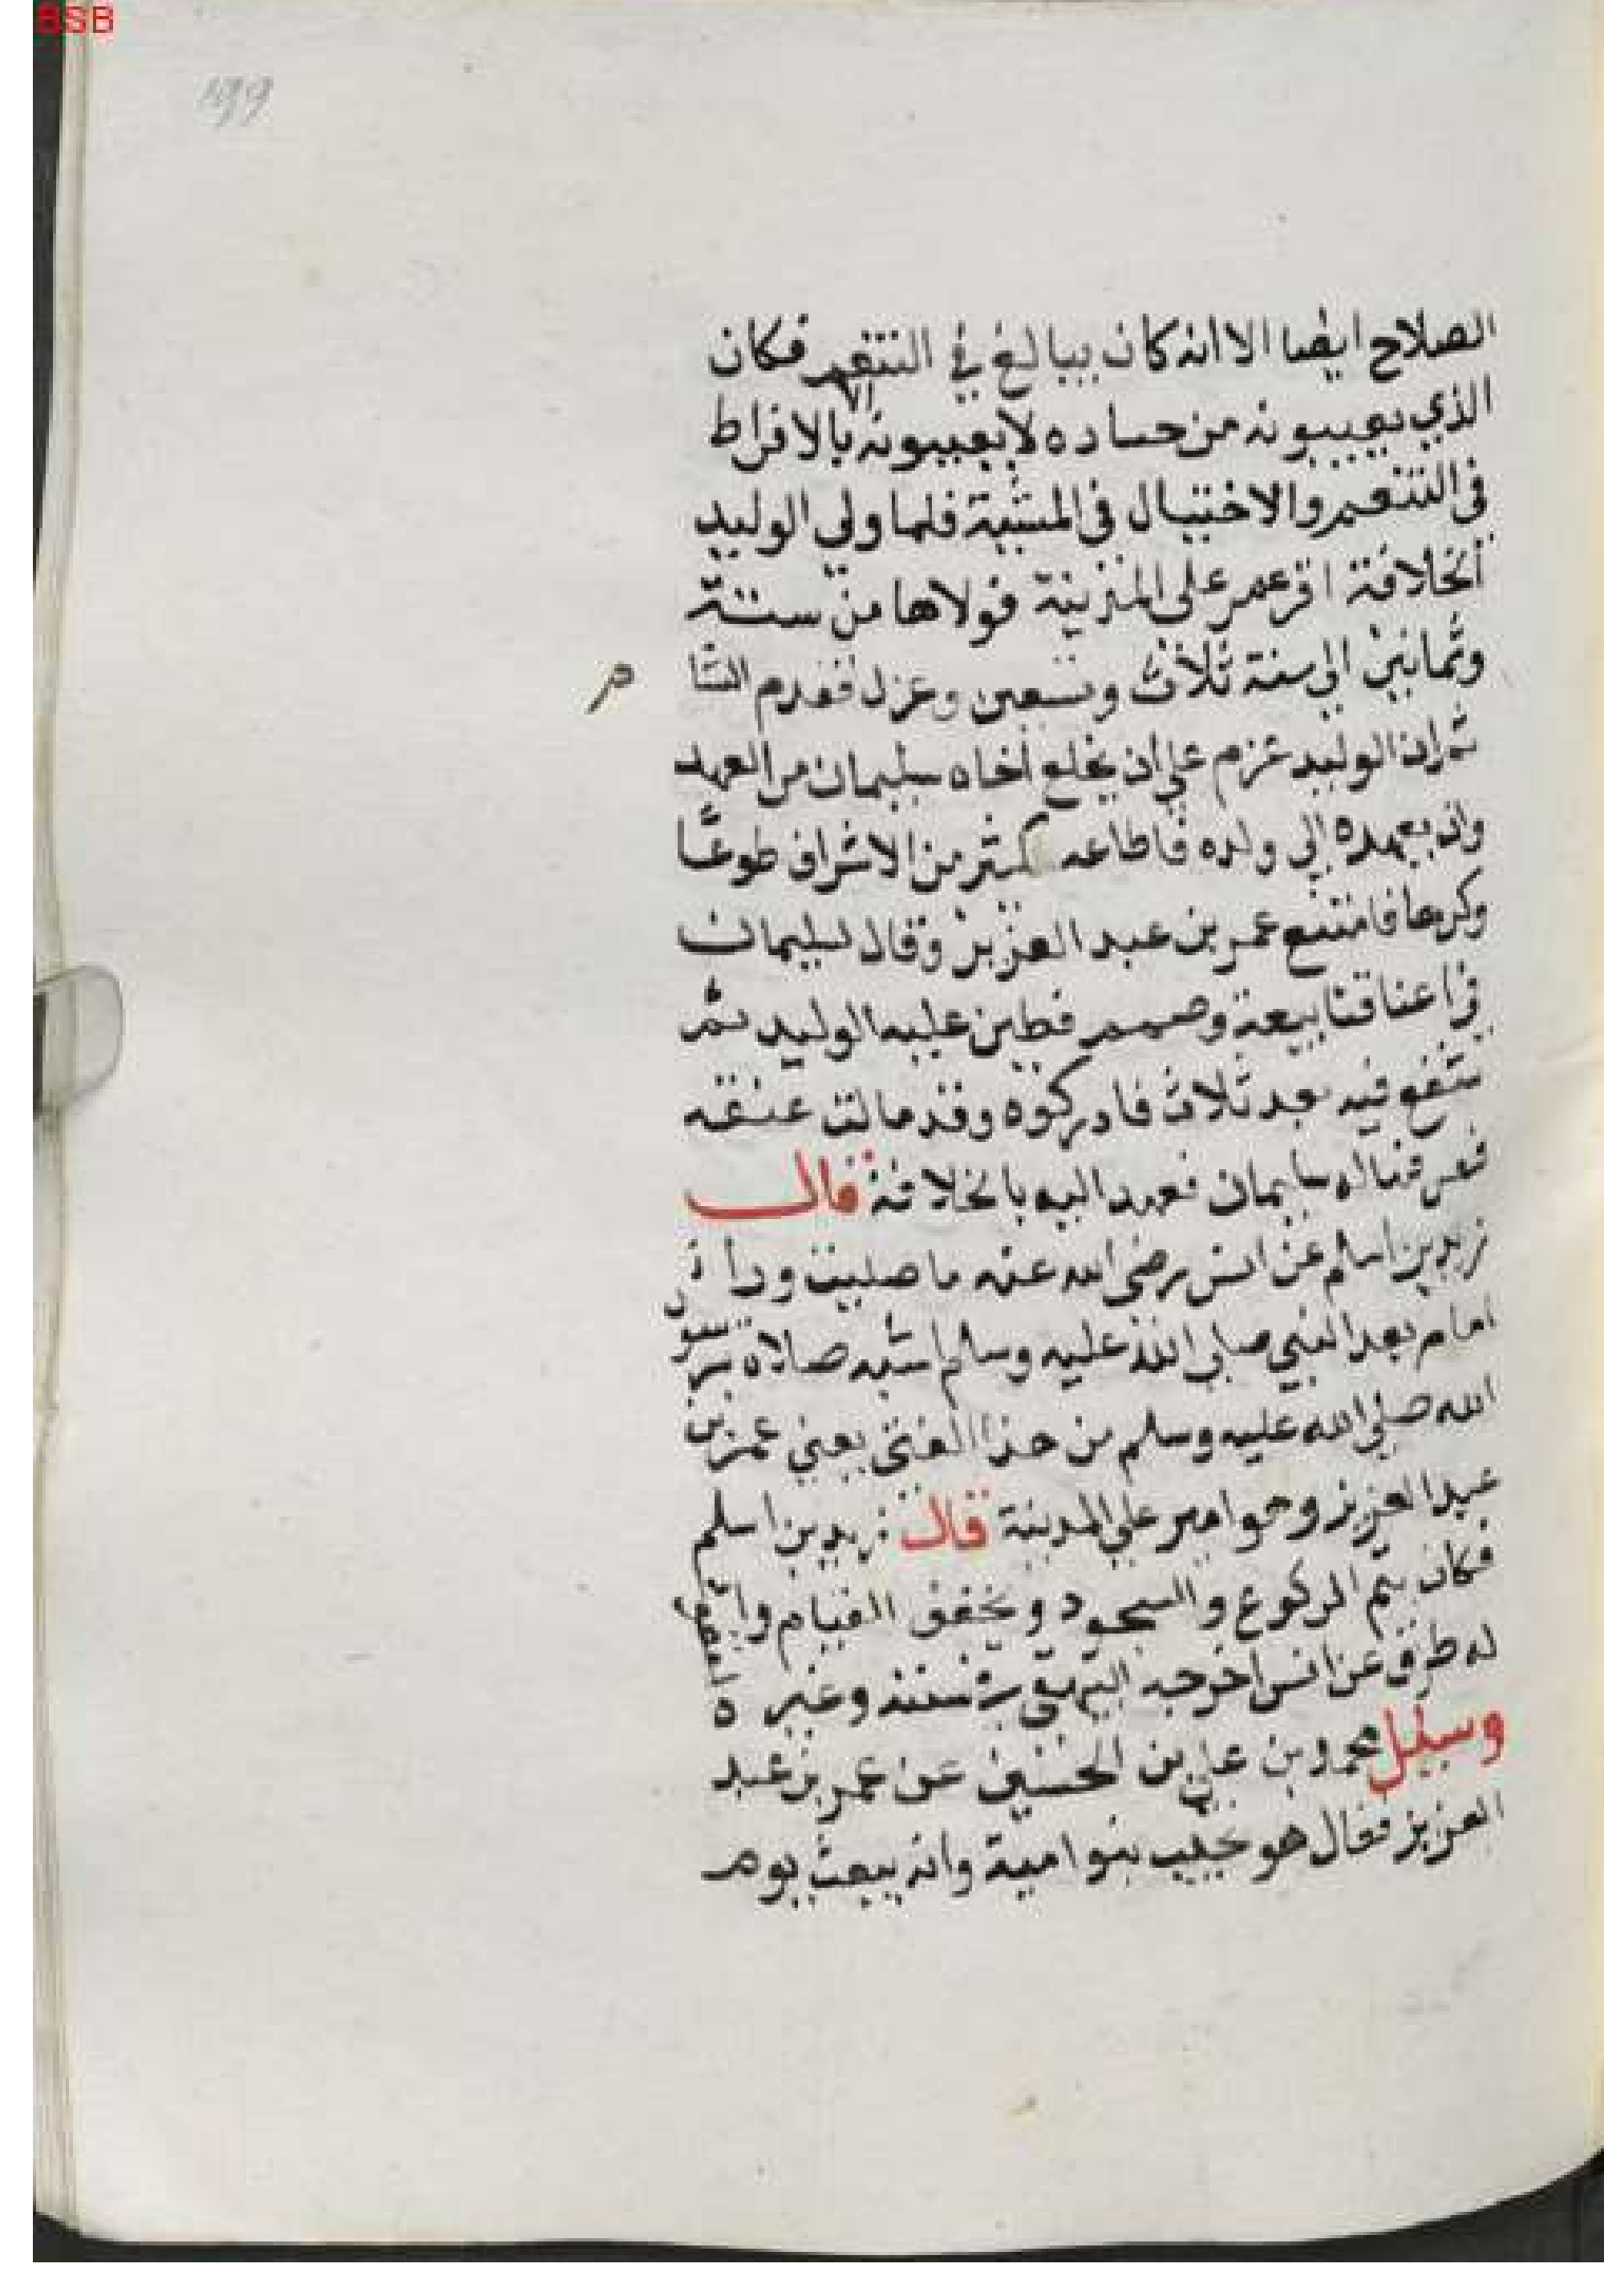 BSB
199
الصلاح ايضا الا انه كان يبالغ في التنعم فكان
الذي يعيبونه من حساده لا يعيبونه الا بالافراط
في التنعم والاختيال في المشية فلما ولي الوليد
الخلافة اقر عمر على المدينة فولاها من ستة
وثمانين الى سنة ثلاث وتسعين وعزل فقدم الشا
م
ثم ان الوليد عزم على ان يخلع اخاه سليمان من العهد
وان يعهده الى ولده فاطاعه كثير من الاشراف طوعا
وكرها فامتنع عمر بن عبد العزيز وقال لسليمان
في اعناقنا بيعة وصمم فطين عليه الوليد ثم
شفع فيه بعد ثلاث فادركوه وقد مالت عنقه
فعرفها له سليمان فعهد اليه بالخلافة قال
زيد بن اسلم عن انس رضي الله عنه ما صليت ورا
امام بعد النبي صلى الله عليه وسلم اشبه صلاة برسول
الله صلى الله عليه وسلم من هذا الفتى يعني عمر بن
عبد العزيز وهو امير على المدينة قال زيد بن اسلم
فكان يتم الركوع والسجود ويخفف القيام والقعود
له طرق عن انس اخرجه البيهقي سننه وغيره
وسيل محمد بن علي بن الحسين عن عمر بن عبد
العزيز فقال هو نجيب بنو امية وانه يبعث يوم